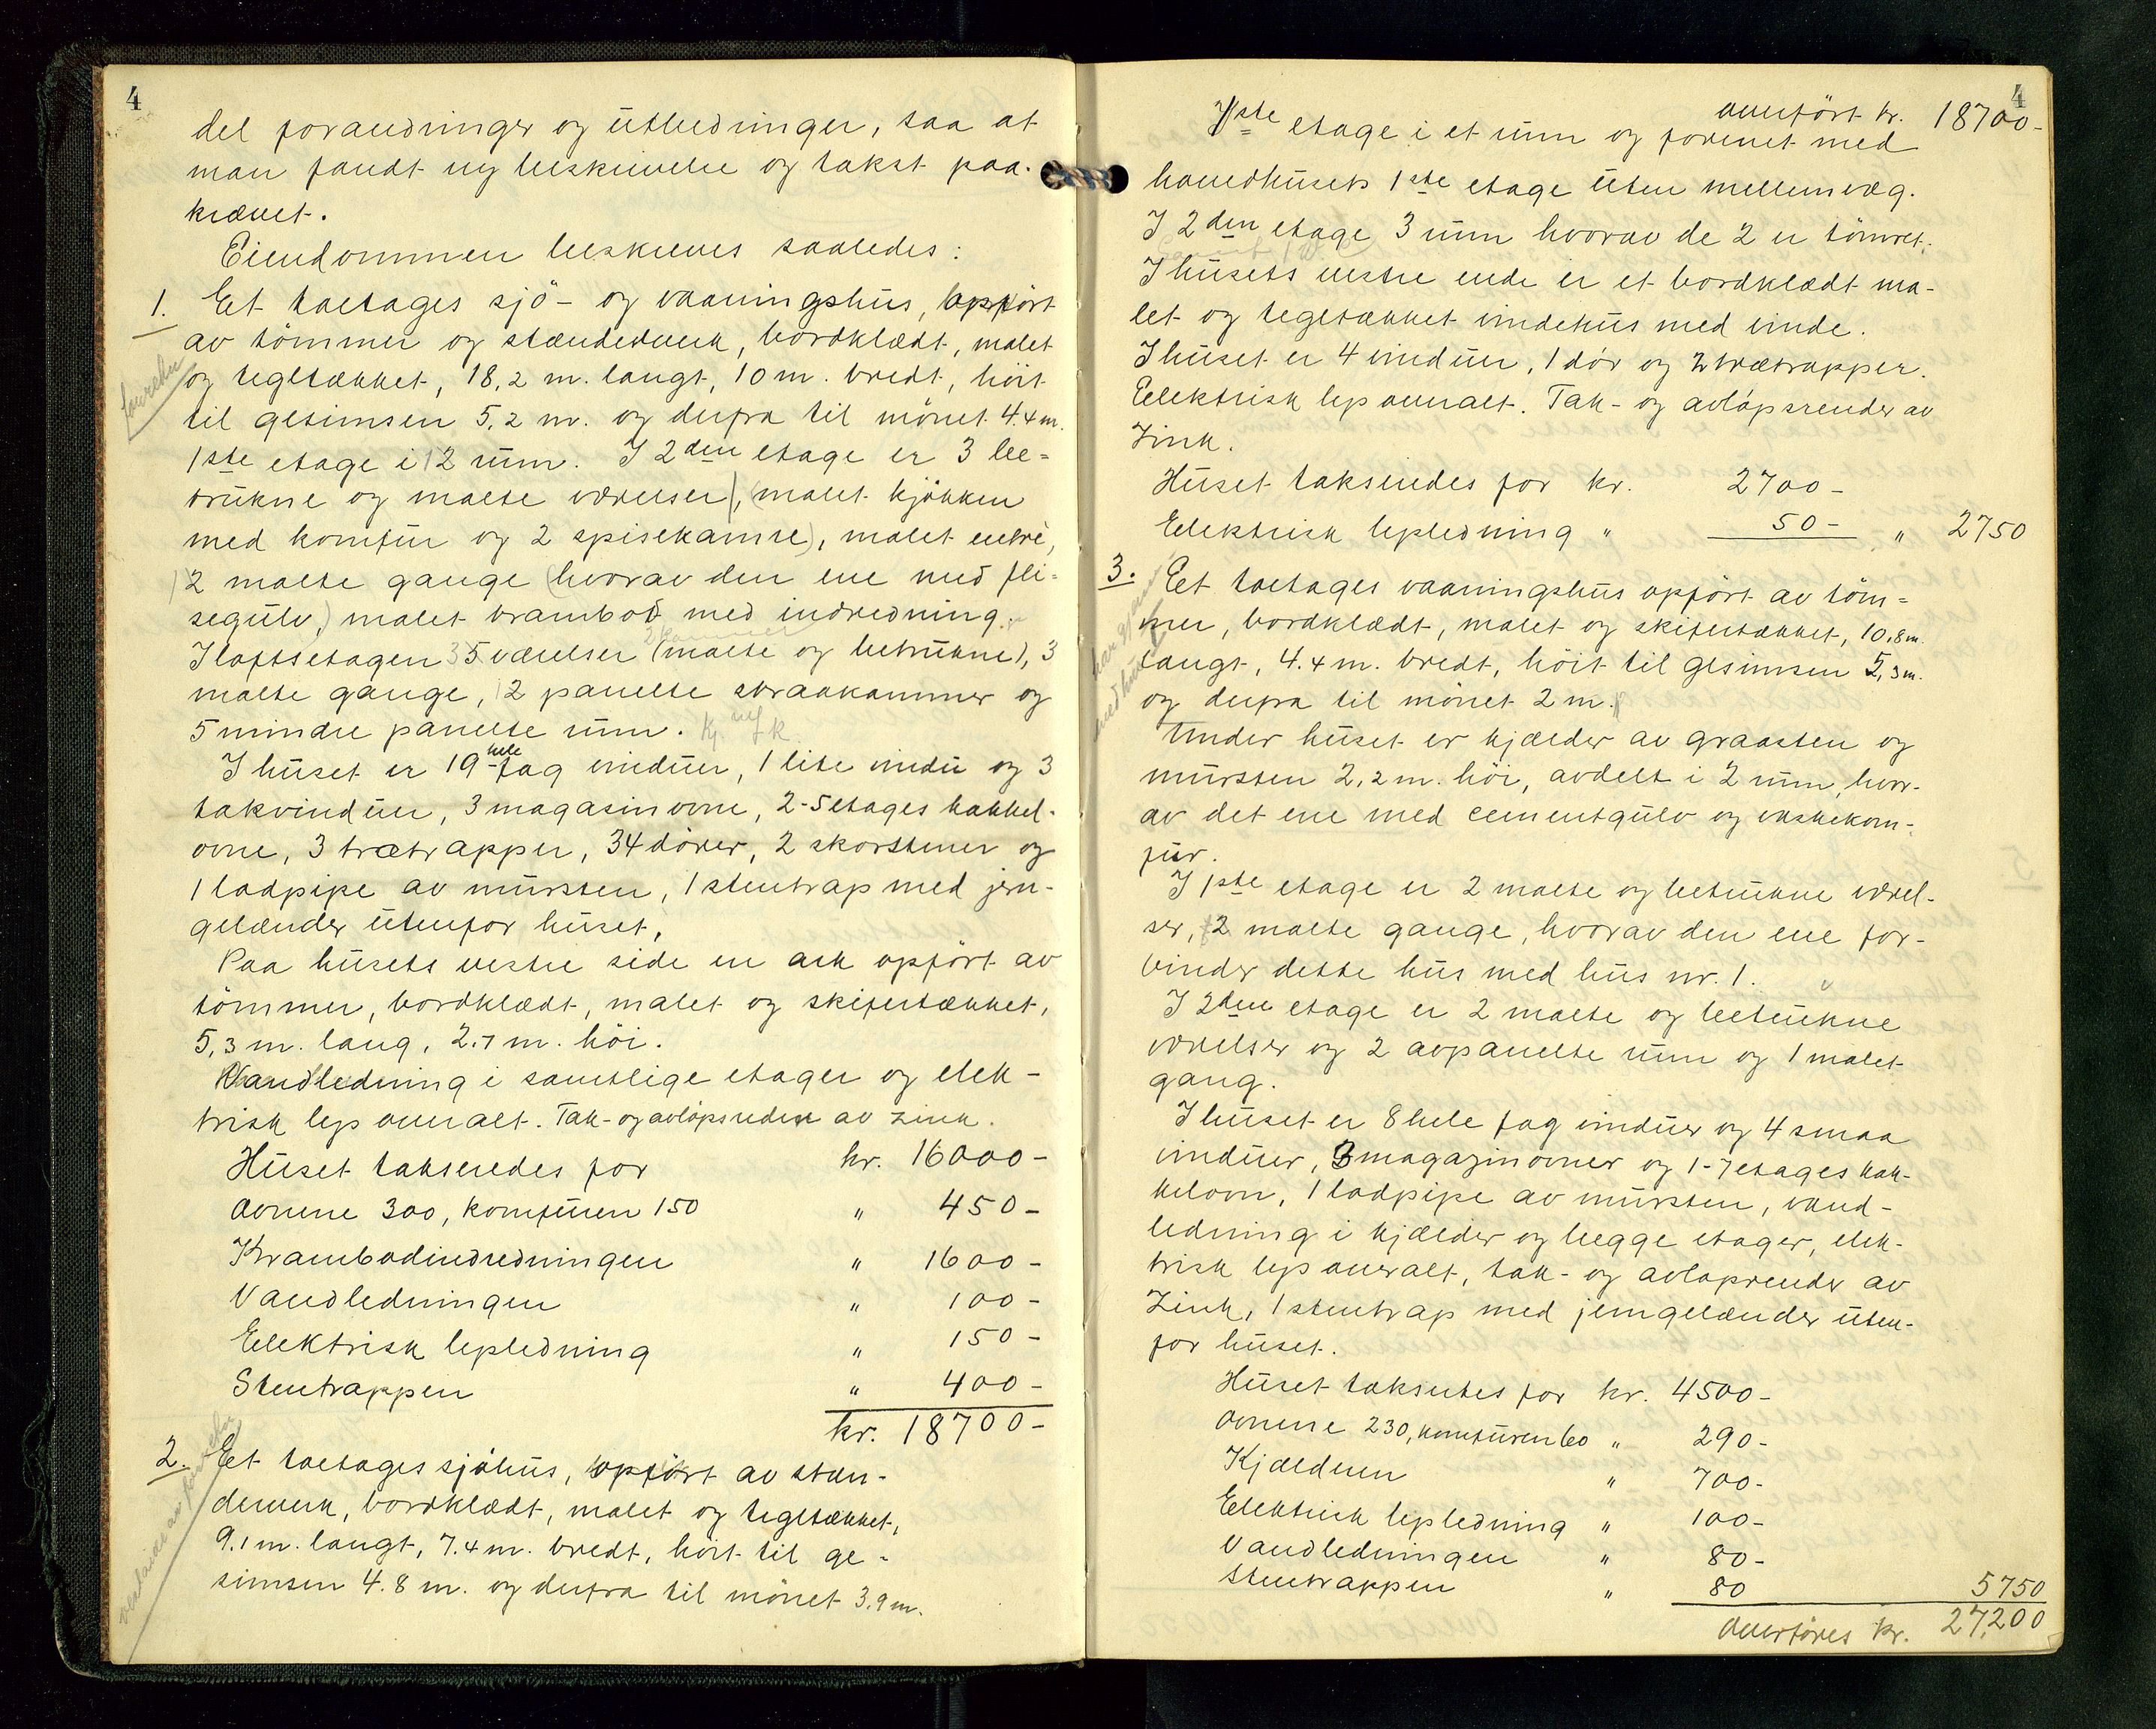 4
del forandringer og utbedringer, saa at
man fandt ny beskrivelse og takst paa-
krævet.
Eiendommen beskrives saaledes:
1. Et toetages sjö- og vaaningshus, opført
av tömmer og stænderverk, bordklædt, malet
og tegltækket, 18,2 m. langt, 10 m. bredt, höit
til gesimsen 5,2 m. og derfra til mönet 4.4 m.
1ste etage i 2 rum. I 2den etage er 3 be-
trukne og malte værelser, (malet kjökken
med komfur og 2 spisekamre), malet entrè,
2 malte gange (hvorav den ene med fli-
segulv,) malet krambod med indredning.
I loftsetagen 5 værelser (malte og betrukne), 3
malte gange, 2 panelte skraakammer og
5 mindre panelte rum.
I huset er 19 hele fag vinduer, 1 lite vindu og 3
takvinduer, 3 magasinovne, 2-5etages kakkel-
ovne, 3 trætrapper, 34 dörer, 2 skorstener og
1 lodpipe av mursten, 1 stentrap med jern-
gelænder utenfor huset,
Paa husets vestre side en ark opfört av
tömmer, bordklædt, malet og skifertækket,
5,3 m. lang, 2.7 m. höi.
Vandledning i samtlige etager og elek-
trisk lys overalt. Tak- og avlöpsrender av zink.
Huset takseredes for kr. 16000-
Ovnene 300, komfuren 150 " 450-
Krambodindredningen " 1600-
Vandledningen " 100-
Elektrisk lysledning " 150-
Stentrappen " 400-
kr. 18700-
2. Et toetages sjöhus, opfört av stæn-
derverk, bordklædt, malet og tegltækket,
9.1 m. langt, 7.4 m. bredt, höit til ge-
simsen 4.8 m. og derfra til mönet 3.9 m.
4
overfört kr. 18700-
1ste etage i et rum og forenet med
hovedhusets 1ste etage uten mellemvæg.
I 2den etage 3 rum hvorav de 2 er tömret.
I husets vestre ende er et bordklædt ma-
let og tegltækket vindehus med vinde.
I huset er 4 vinduer, 1 dör og 2 trætrapper.
Elektrisk lys overalt. Tak- og avlöpsrender av
Zink.
Huset takseredes for kr. 2700-
Elektrisk lysledning " 50- " 2750
3. Et toetages vaaningshus opfört av töm-
mer, bordklædt, malet og skifertækket, 10,8 m.
langt, 4.4 m. bredt, höit til gesimsen 5,3 m.
og derfra til mönet 2 m.
Under huset er kjælder av graasten og
mursten 2,2 m. höi, avdelt i 2 rum, hvor-
av det ene med cementgulv og vaskekom-
fur.
I 1ste etage er 2 malte og betrukne værel-
ser, 2 malte gange, hvorav den ene for-
binder dette hus med hus nr. 1.
I 2den etage er 2 malte og betrukne
værelser og 2 avpanelte rum og 1 malet
gang.
I huset er 8 hele fag vinduer og 4 smaa
vinduer, 3 magazinovner og 1-7etages kak-
kelovn, 1 lodpipe av mursten, vand-
ledning i kjælder og begge etager, elek-
trisk lys overalt, tak- og avløpsrender av
Zink, 1 stentrap med jerngelænder uten-
for huset.
Huset taksertes for kr. 4500-
Ovnene 230, komfuren 60 " 290-
Kjælderen " 700-
Elektrisk lysledning " 100-
Vandledningen " 80-
Stentrappen " 80 5750
Overföres kr. 27,200